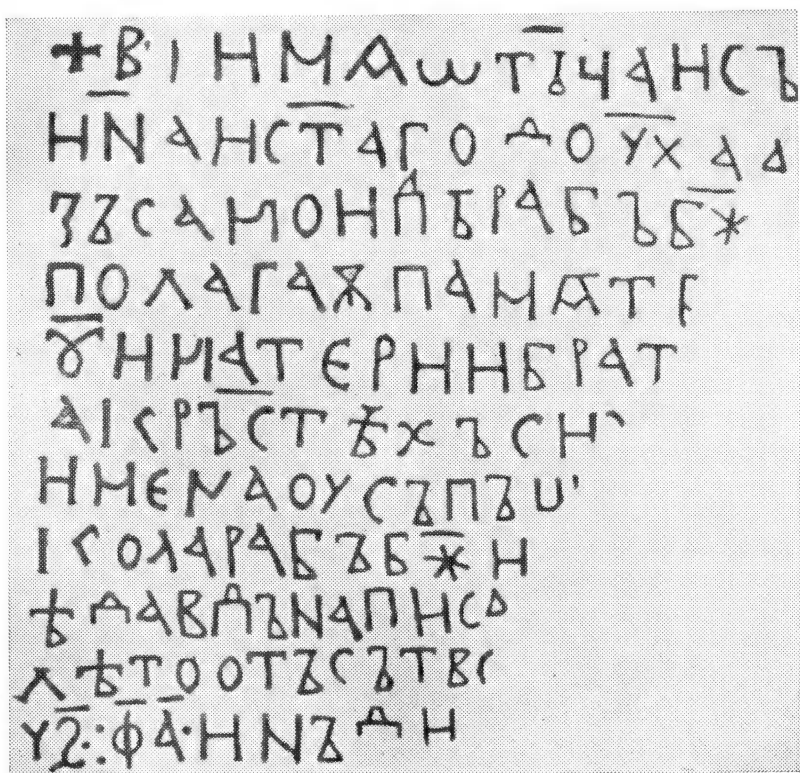 + В' І И М Ѧ Ѡ Т Ъ Ч А И С Ъ
И N А И С Т А Г О Д О У Х А А
З Ъ С А М О И Л Ъ Р А Б Ъ Б Ж
П О Л А Г А Ѫ П А М Ѧ Т Е
Ꙋ И М А Т Е Р И И Б Р А Т
А І К Р Ъ С Т Ѣ Х Ъ С И
И М Е N А О У С Ъ П Ъ Ш'
І К О Л А Р А Б Ъ Б Ж И
Ѣ Д А В Д Ъ N А П И С А
Л Ѣ Т О О Т Ъ С Ъ Т В О
У Ѕ : Ф А · И N Ъ Д И